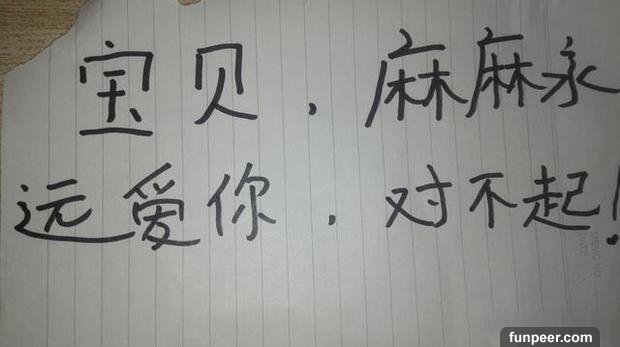 宝贝，麻麻永
远爱你，对不起！
funpeer.com